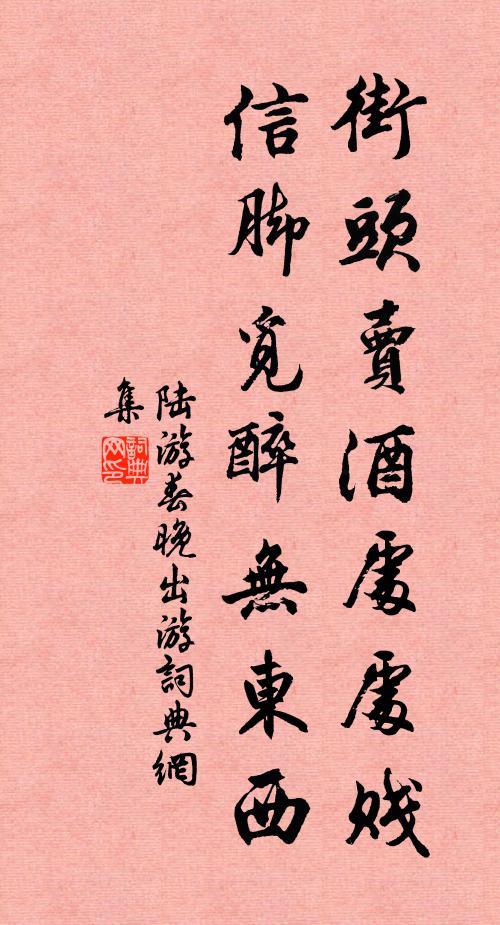 街頭賣酒處處賤
信脚覓醉無東西
陆游春晚出游詞典網
集
詞典
网印